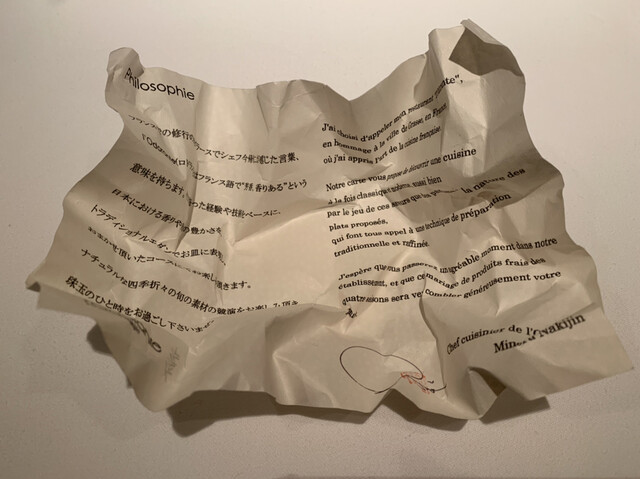 Philosophie
フランスの修行のコースでシェフが感じた言葉、
l'Odorante(ロド
はフランス語で"香りある"という
意味を持ちます。
った経験や技術ベースに、
日本における香りや
の豊かさを
トラディショナルモダンでお皿に表現
おまかせ頂いたコースに
頂きます。
ナチュラルな四季折々の旬の素材の饗演をお楽しみ頂き
珠玉のひと時をお過ごし下さいませ
J'ai choisi d'appeler mon restaurant
en hommage à la ville de Grasse, en France,
où j'ai appris l'art de la cuisine française.
Notre carte vous propose de découvrir une cuisine
à la fois classique et moderne, aussi bien
par le jeu de ces saveurs que par la nature des
plats proposés,
qui font tous appel à une technique de préparation
traditionnelle et raffinée.
J'espère que vous passerez un agréable moment dans notre
établissement, et que ce mariage de produits frais des
quatre saisons saura vous combler généreusement votre
Chef cuisinier de
Nakijin